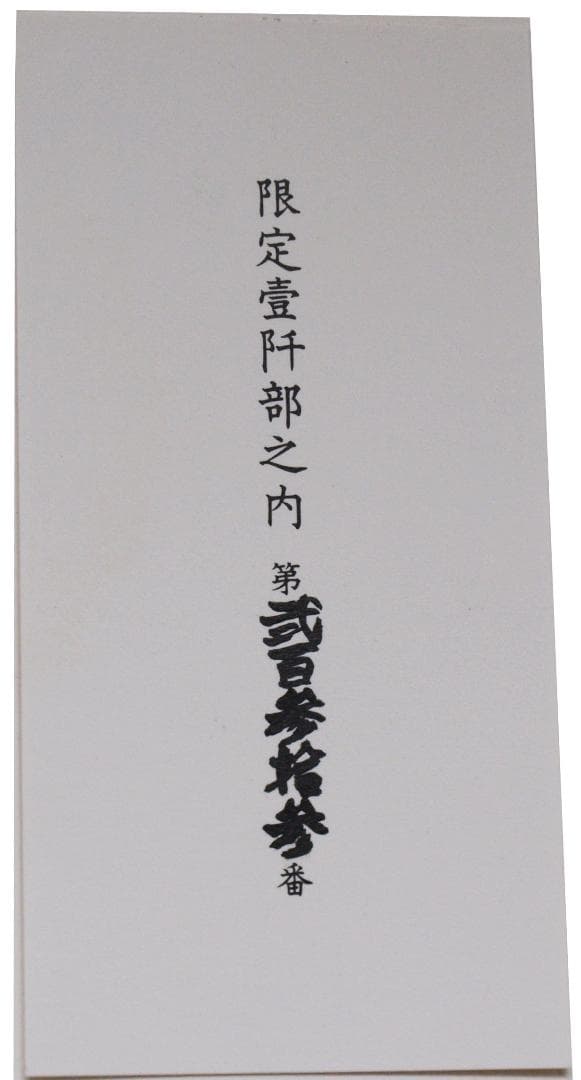 限定壹阡部之内 第貳百参拾参番